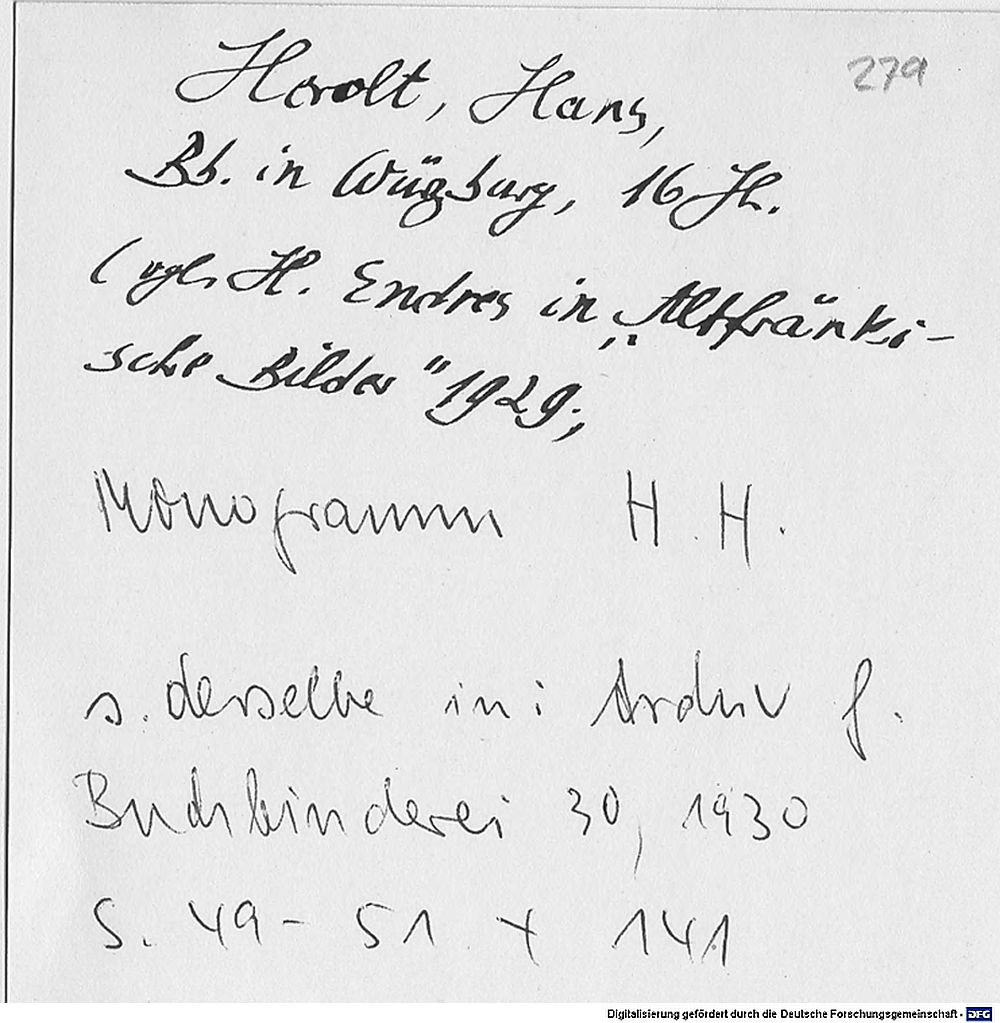 279
Herolt, Hans,
Bb. in Würzburg, 16 Jh.
(vgl. H. Endres in „Altfränki-
sche Bilder" 1929;
Monogramm H. H.
s. derselbe in: Archiv f.
Buchbinderei 30, 1930
S. 49 - 51 + 141
Digitalisierung gefördert durch die Deutsche Forschungsgemeinschaft - DFG